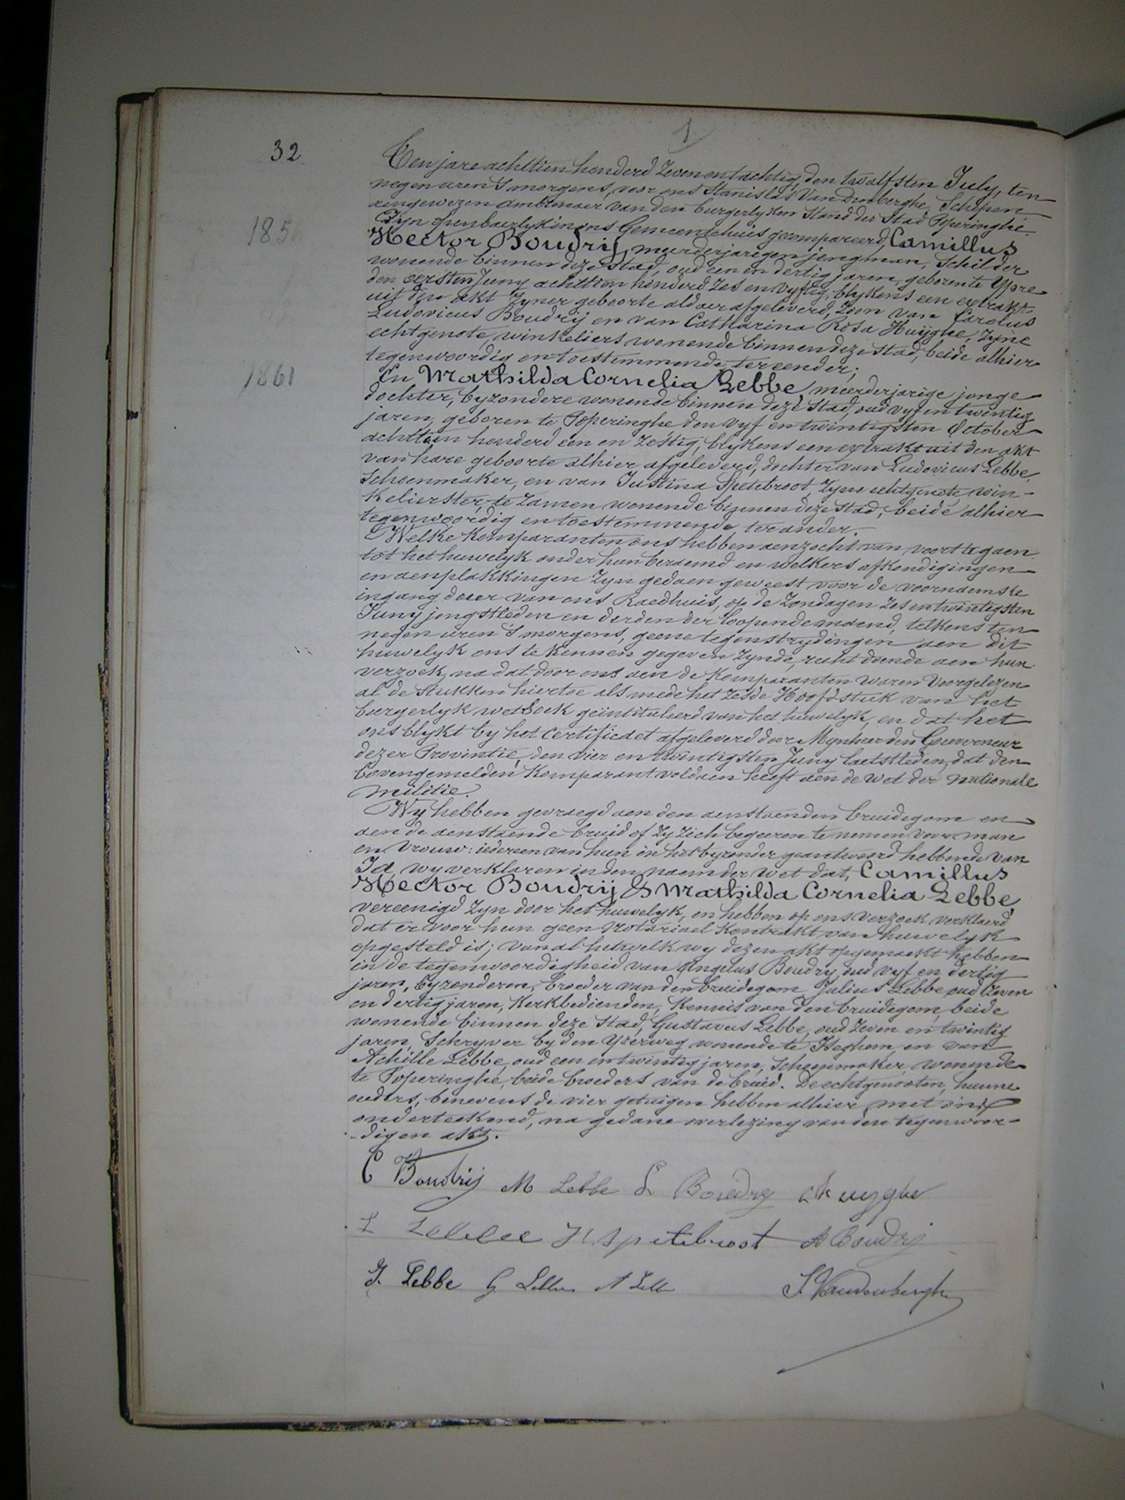 1
32
Ten jare achttien honderd zeven en tachtig, den twaalfsten July, ten
negen uren 's morgens, voor ons Stanislas Vandenberghe, Schepen
aangewezen ambtenaer van den burgerlyken Stand der Stad Poperinghe
Zyn openbaerlyk in ons Gemeentehuis gecompareerd, Camillus
185
Hector Boudrij, meerderjarigen jongman, Schilder
wonende binnen deze stad, oud een en dertig jaren, geboren te Ypre
den eersten Juny achttien honderd zes en vyftig, blykens een extrakt
uit den akt zyner geboorte aldaer afgeleverd, zoon van Carolus
Ludovicus Boudrij en van Catharina Rosa Huijghe, zyne
echtgenote, winkeliers wonende binnen deze stad, beide alhier
tegenwoordig en toestemmende, ter eender;
1861
En Mathilda Cornelia Lebbe, meerderjarige jonge
dochter, byzondere wonende binnen deze Stad, oud vyf en twintig
jaren, geboren te Poperinghe den vyf en twintigsten October
achttien honderd een en zestig, blykens een extrakt uit den akt
van hare geboorte alhier afgeleverd, dochter van Ludovicus Lebbe,
Schoenmaker, en van Justina Spetebroot zyne echtgenote, win-
kelierster, te zamen wonende binnen deze stad, beide alhier
tegenwoordig en toestemmende, ter ander.
Welke komparanten ons hebben aenzocht van voort te gaen
tot het huwelyk onder hun beraemd en welkers afkondigingen
en aenplakkingen zyn gedaen geweest voor de voornaemste
ingang deur van ons Raedhuis, op de Zondagen zes en twintigsten
Juny jongstleden en derden der loopende maend, telkens ten
negen uren 's morgens, geene tegenstrydingen aen dit
huwelyk ons te kennen gegeven zynde, recht doende aen hun
verzoek, na dat door ons aen de komparanten waren voorgelezen
al de stukken hiertoe als mede het zesde Hoofdstuk van het
burgerlyk wetboek geintituleerd van het huwelyk, en dat het
ons blykt by het Certificaet afgeleverd door Mynheer den Gouverneur
dezer Provintie, den vier en twintigsten Juny laetstleden, dat den
bovengemelden komparant voldaen heeft aen de wet der nationale
militie.
Wy hebben gevraegd aen den aenstaenden bruidegom en
aen de aenstaende bruid of zy zich begeeren te nemen voor man
en vrouw: iedereen van hun in het byzonder geantwoord hebbende van
Ja, wy verklaren in den naem der Wet dat, Camillus
Hector Boudrij & Mathilda Cornelia Lebbe,
vereenigd zyn door het huwelyk, en hebben op ons verzoek verklaerd
dat er voor hun geen notariael kontrakt van huwelyk
opgesteld is; van al hetwelk wy dezen akt opgemaekt hebben
in de tegenwoordigheid van Angelus Boudry, oud vyf en dertig
jaren, byzonderen, broeder van den bruidegom, Julius Lebbe, oud zeven
en dertig jaren, kerkbedienden, kennis van den bruidegom, beide
wonende binnen deze stad, Gustavus Lebbe, oud zeven en twintig
jaren, Schryver by den Yzerweg wonende te Iseghem, en van
Achille Lebbe, oud een en twintig jaren, Schoenmaker, wonende
te Poperinghe, beide broeders van de bruid. De echtgenoten, hunne
ouders, benevens de vier getuigen hebben alhier met ons
onderteekend, na gedane overlezing van den tegenwoor-
digen akt.
C Boudrij M Lebbe L Boudry Huyghe
L Lebbe Spetebroot A Boudry
J. Lebbe G Lebbe A Lebbe S Vandenberghe